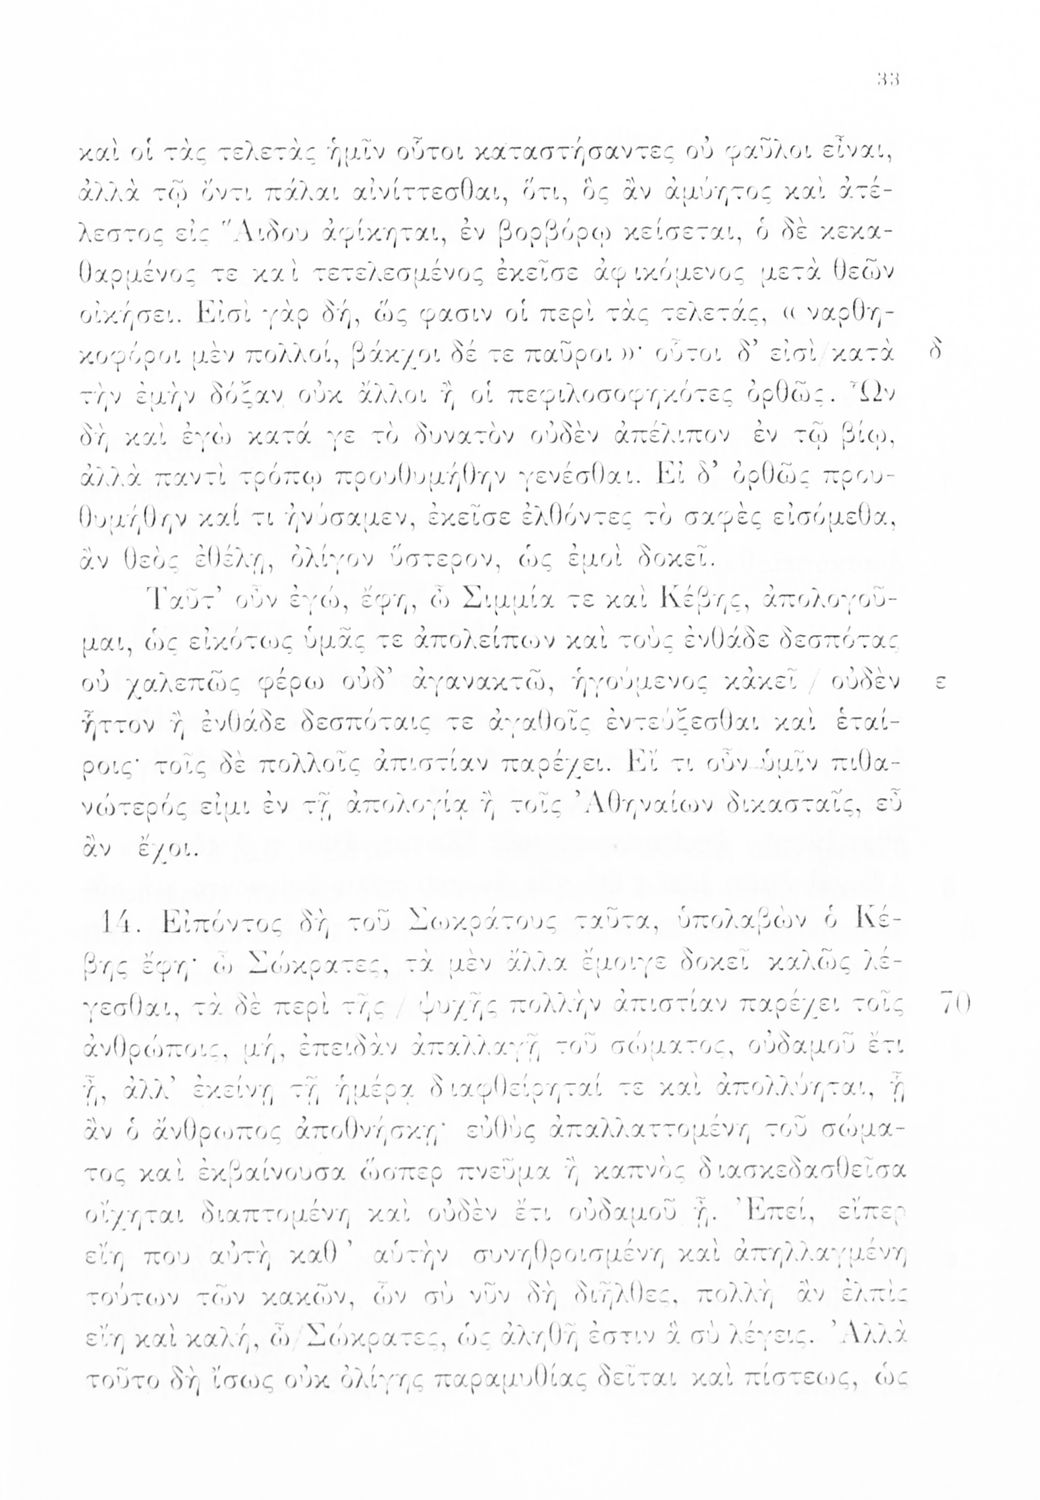 33
καὶ οἱ τὰς τελετὰς ἡμῖν οὗτοι καταστήσαντες οὐ φαῦλοι εἶναι,
ἀλλὰ τῷ ὄντι πάλαι αἰνίττεσθαι, ὅτι, ὃς ἂν ἀμύητος καὶ ἀτέ-
λεστος εἰς Ἅιδου ἀφίκηται, ἐν βορβόρῳ κείσεται, ὁ δὲ κεκα-
θαρμένος τε καὶ τετελεσμένος ἐκεῖσε ἀφικόμενος μετὰ θεῶν
οἰκήσει. Εἰσὶ γὰρ δή, ὥς φασιν οἱ περὶ τὰς τελετάς, « ναρθη-
κοφόροι μὲν πολλοί, βάκχοι δέ τε παῦροι »· οὗτοι δ’ εἰσὶ / κατὰ δ
τὴν ἐμὴν δόξαν οὐκ ἄλλοι ἢ οἱ πεφιλοσοφηκότες ὀρθῶς. Ὧν
δὴ καὶ ἐγὼ κατά γε τὸ δυνατὸν οὐδὲν ἀπέλιπον ἐν τῷ βίῳ,
ἀλλὰ παντὶ τρόπῳ προυθυμήθην γενέσθαι. Εἰ δ’ ὀρθῶς πρου-
θυμήθην καί τι ἠνύσαμεν, ἐκεῖσε ἐλθόντες τὸ σαφὲς εἰσόμεθα,
ἂν θεὸς ἐθέλῃ, ὀλίγον ὕστερον, ὡς ἐμοὶ δοκεῖ.
Ταῦτ’ οὖν ἐγώ, ἔφη, ὦ Σιμμία τε καὶ Κέβης, ἀπολογοῦ-
μαι, ὡς εἰκότως ὑμᾶς τε ἀπολείπων καὶ τοὺς ἐνθάδε δεσπότας
οὐ χαλεπῶς φέρω οὐδ’ ἀγανακτῶ, ἡγούμενος κἀκεῖ / οὐδὲν ε
ἧττον ἢ ἐνθάδε δεσπόταις τε ἀγαθοῖς ἐντεύξεσθαι καὶ ἑταί-
ροις· τοῖς δὲ πολλοῖς ἀπιστίαν παρέχει. Εἴ τι οὖν ὑμῖν πιθα-
νώτερός εἰμι ἐν τῇ ἀπολογίᾳ ἢ τοῖς Ἀθηναίων δικασταῖς, εὖ
ἂν ἔχοι.
14. Εἰπόντος δὴ τοῦ Σωκράτους ταῦτα, ὑπολαβὼν ὁ Κέ-
βης ἔφη· ὦ Σώκρατες, τὰ μὲν ἄλλα ἔμοιγε δοκεῖ καλῶς λέ-
γεσθαι, τὰ δὲ περὶ τῆς / ψυχῆς πολλὴν ἀπιστίαν παρέχει τοῖς 70
ἀνθρώποις, μή, ἐπειδὰν ἀπαλλαγῇ τοῦ σώματος, οὐδαμοῦ ἔτι
ᾖ, ἀλλ’ ἐκείνῃ τῇ ἡμέρᾳ διαφθείρηταί τε καὶ ἀπολλύηται, ᾗ
ἂν ὁ ἄνθρωπος ἀποθνήσκῃ· εὐθὺς ἀπαλλαττομένη τοῦ σώμα-
τος καὶ ἐκβαίνουσα ὥσπερ πνεῦμα ἢ καπνὸς διασκεδασθεῖσα
οἴχηται διαπτομένη καὶ οὐδὲν ἔτι οὐδαμοῦ ᾖ. Ἐπεί, εἴπερ
εἴη που αὐτὴ καθ’ αὑτὴν συνηθροισμένη καὶ ἀπηλλαγμένη
τούτων τῶν κακῶν, ὧν σὺ νῦν δὴ διῆλθες, πολλὴ ἂν ἐλπὶς
εἴη καὶ καλή, ὦ Σώκρατες, ὡς ἀληθῆ ἐστιν ἃ σὺ λέγεις. Ἀλλὰ
τοῦτο δὴ ἴσως οὐκ ὀλίγης παραμυθίας δεῖται καὶ πίστεως, ὡς